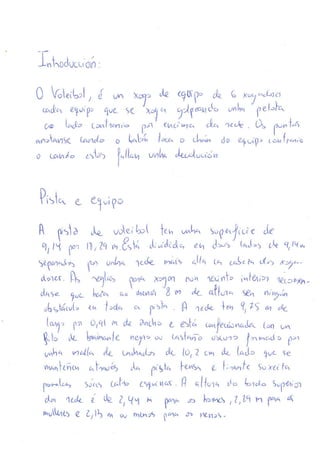 Introducción:
O Voleibol, é un xogo de equipo de 6 xogadores
cada equipo que se xoga golpeando unha pelota
ao lado contrario por encima da rede. Os puntos
anotanse cando o balón toca o chan do equipo contrario
o cando estes fallan unha devolución
Pista e equipo
A pista de voleibol ten unha superficie de
9,14 por 18,29 m. Está dividida en dous lados de 9,14m
separados por unha rede mais alta ca cabeza dos xoga-
dores. As reglas para xogar nun recinto interior recomen-
danse que haxa ao menos 8 m de altura sen ningún
obstáculo en toda a pista. A rede ten 9,75 m de
largo por 0,91 m de ancho e está confeccionada con un
fío de bramante negro ou castaño oscuro formado por
unha malla de cadrados de 10,2 cm de lado que se
manteñen a través da pista tensa e tirante suxeita
polas súas catro esquinas. A altura do borde superior
da rede é de 2,44 m para os homes, 2,24 m para as
mulleres e 2,13 m ou menos para os nenos.